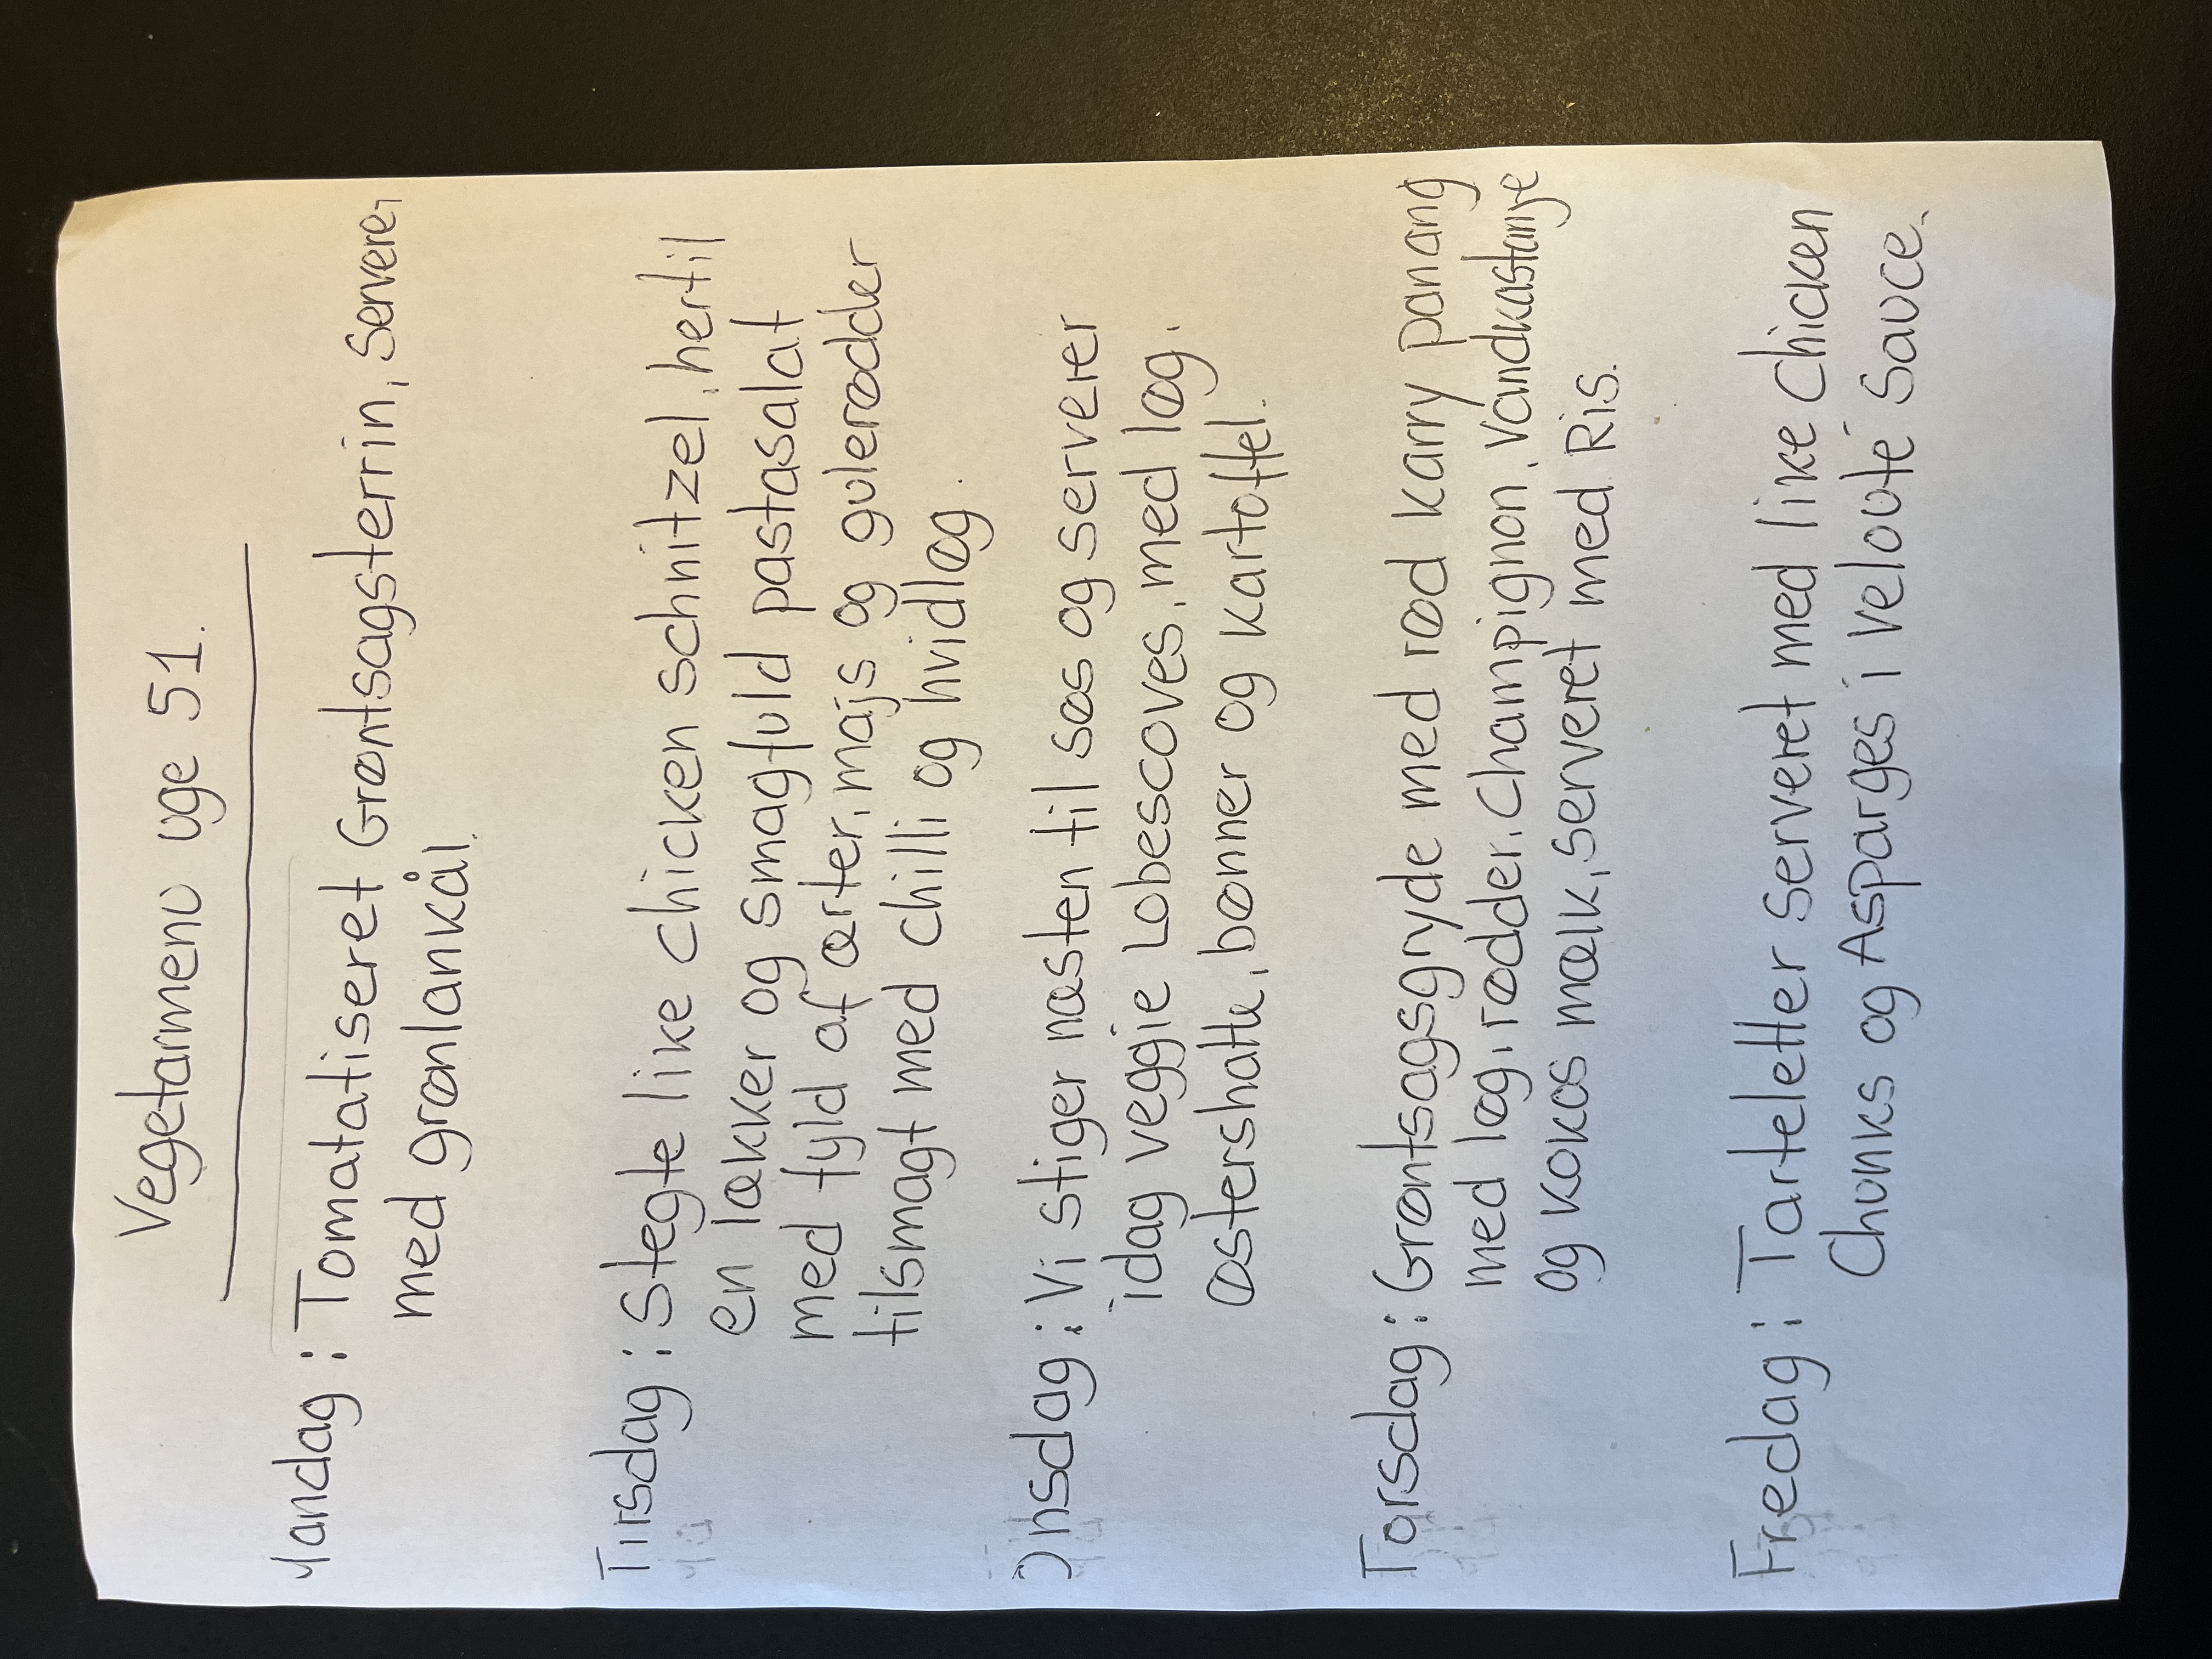 Vegetarmenu uge 51.
Mandag : Tomatatiseret Grøntsagsterrin, Serverer
med grønlankål.
Tirsdag : Stegte like chicken schnitzel, hertil
en lækker og smagfuld pastasalat
med fyld af ærter, majs og gulerødder
tilsmagt med chilli og hvidløg.
Onsdag : Vi stiger næsten til søs og serverer
idag veggie Lobescoves, med løg,
østershatte, bønner og kartoffel.
Torsdag : Grøntsagsgryde med rød karry panang
med løg, rødder, champignon, vandkastanje
og kokos mælk, serveret med Ris.
Fredag : Tarteletter serveret med like chicken
Chunks og Asparges i velouté Sauce.